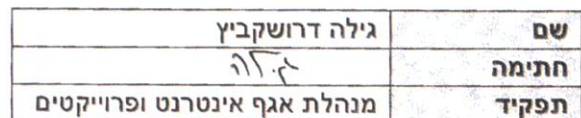 שם גילה דרושקביץ
חתימה גילה
תפקיד מנהלת אגף אינטרנט ופרוייקטים